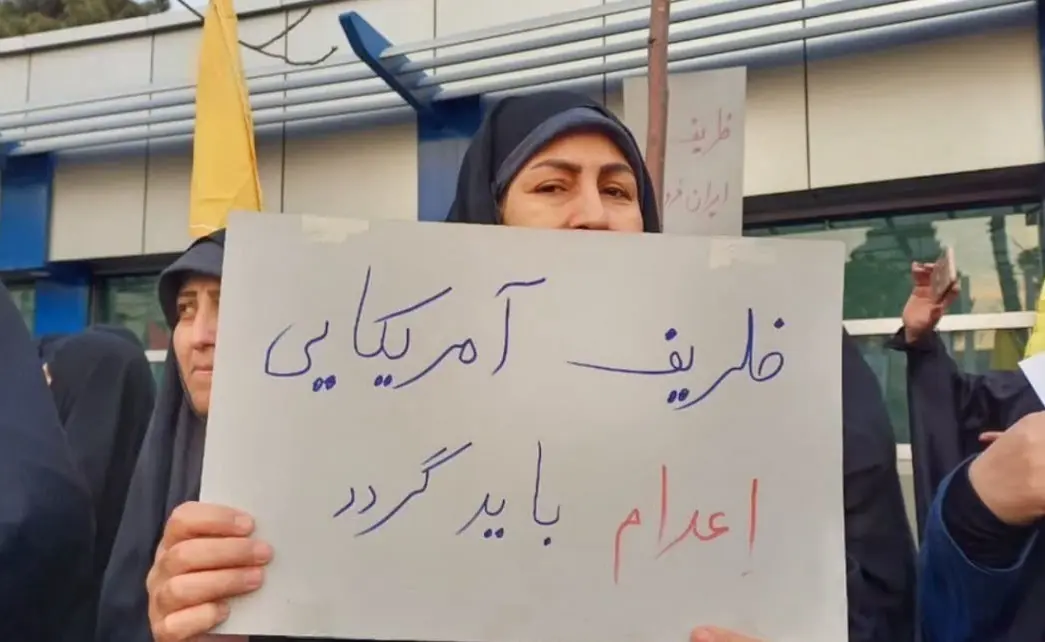 ظریف آمریکایی
اعدام باید گردد
ظریف
ایران